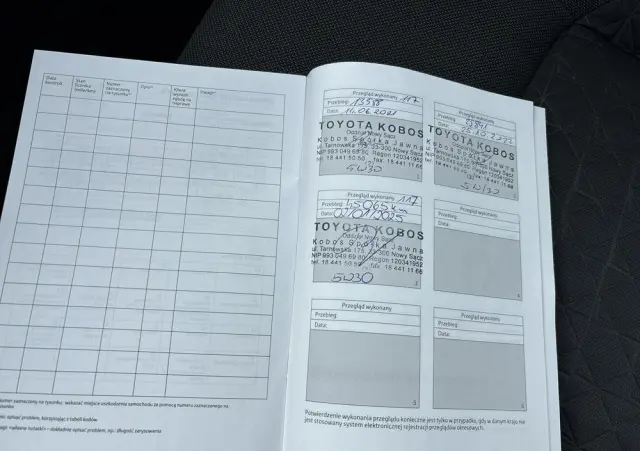 Data kontroli
Stan licznika
Numer zaznaczony na rysunku*
Opis**
Klient wyraził zgodę na naprawę
Uwagi*
numer zaznaczony na rysunku: wskazać miejsce uszkodzenia samochodu za pomocą numeru zaznaczonego na
rysunku
opis: opisać problem, korzystając z tabeli kodów.
uwagi: <własne notatki> – dokładnie opisać problem, np.: długość zarysowania
Przegląd wykonany 117
Przebieg: 13588
Data: 14.06.2021
TOYOTA KOBOS
Oddział Nowy Sącz
Kobos Spółka Jawna
ul. Tarnowska 175, 33-300 Nowy Sącz
NIP 993 049 69 80, Regon 120341952
tel. 18 441 50 50, fax 18 441 11 66
5W30
1
Przegląd wykonany
Przebieg:
Data:
TOYOTA KOBOS
Oddział Nowy Sącz
Kobos Spółka Jawna
ul. Tarnowska 175, 33-300 Nowy Sącz
NIP 993 049 69 80, Regon 120341952
tel. 18 441 50 50, fax 18 441 11 66
5W30
Przegląd wykonany 117
Przebieg: 45065 km
Data: 02/01/2025
TOYOTA KOBOS
Oddział Nowy Sącz
Kobos Spółka Jawna
ul. Tarnowska 175, 33-300 Nowy Sącz
NIP 993 049 69 80, Regon 120341952
tel. 18 441 50 50, fax 18 441 11 66
5W30
2
Przegląd wykonany
Przebieg:
Data:
Przegląd wykonany
Przebieg:
Data:
3
Przegląd wykonany
Przebieg:
Data:
6
Potwierdzenie wykonania przeglądu konieczne jest tylko w przypadku, gdy w danym kraju nie
jest stosowany system elektronicznej rejestracji przeglądów okresowych.